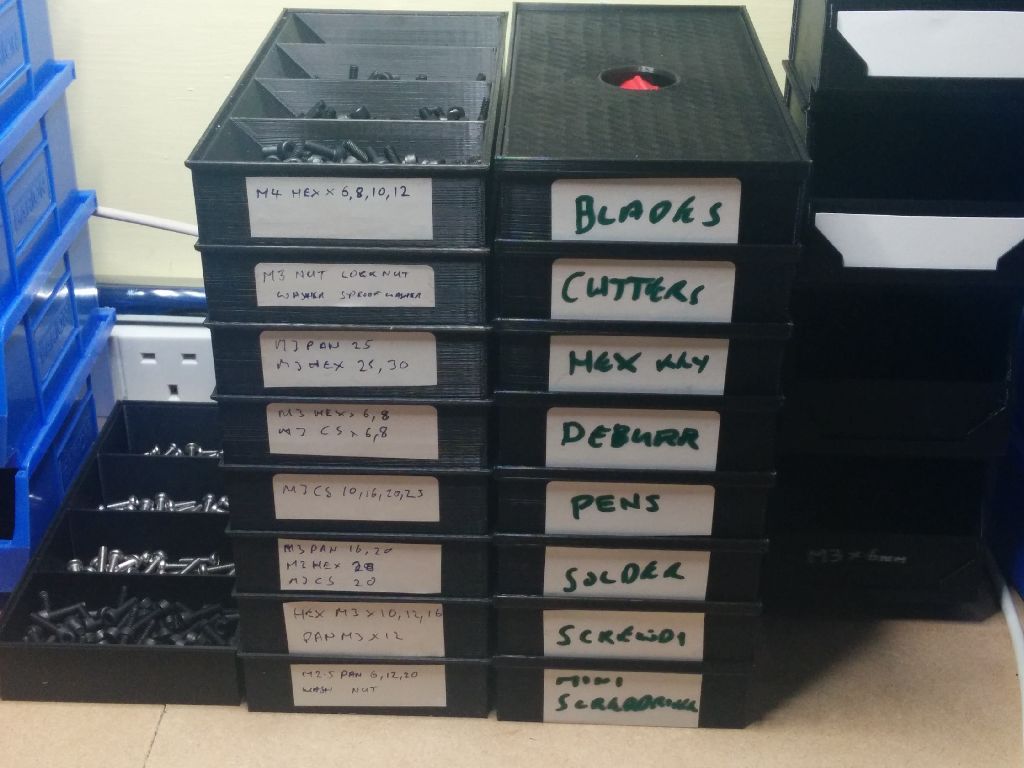 M4 HEX x 6,8,10,12
M3 NUT LOCKNUT
WASHER SPROOF WASHER
M3 PAN 25
M3 HEX 25, 30
M3 HEX x 6,8
M3 CS x 6,8
M3 CS 10,16,20,25
M3 PAN 16, 20
M3 HEX 20
M3 CS 20
HEX M3 x 10,12,16
PAN M3 x 12
M2.5 PAN 6,12,20
WASH NUT
BLADES
CUTTERS
HEX KEY
DEBURR
PENS
SOLDER
MINI
M3 x 6mm